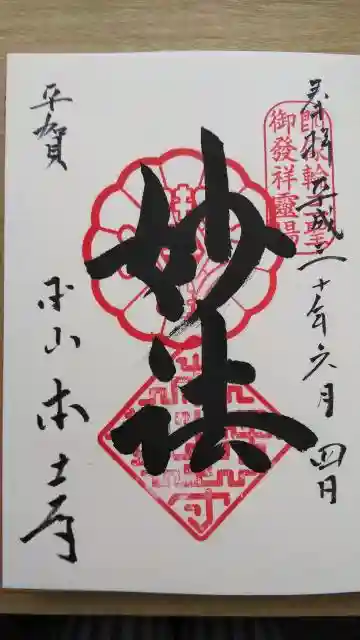 奉拝 平成三十年六月四日
御發祥靈場
妙法
平賀
本山 本土寺